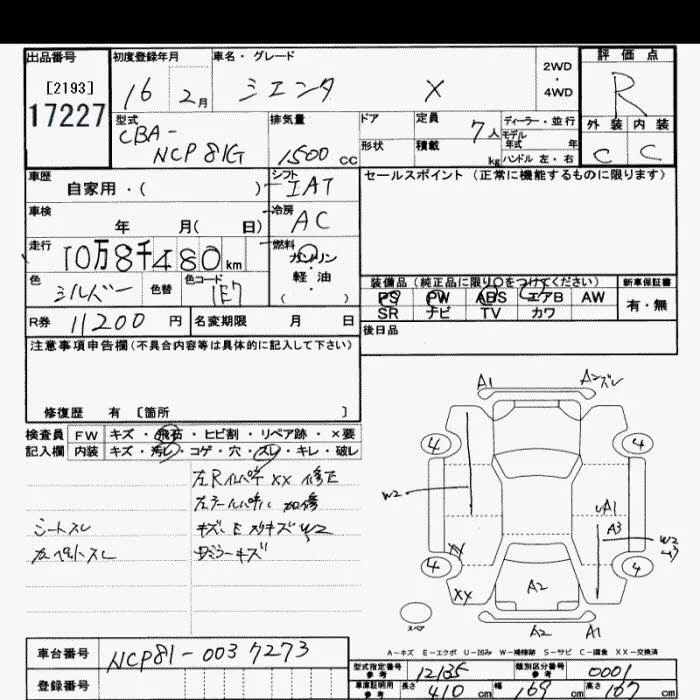 出品番号 初度登録年月 車名・グレード 2WD・4WD 評価点
[2193]
17227
16 2月 シエンタ X R
型式 排気量 ドア 定員 ディーラー・並行 外装 内装
CBA-
NCP81G 1500 CC 形状 積載 7人 kg モデル年式 年 ハンドル 左・右 C C
車歴 自家用・( ) シフト IAT セールスポイント (正常に機能するものに限ります)
車検 年 月( 日) 冷房 AC
走行 10万8千480km 燃料 ガソリン・軽・油 ( )
色 シルバー 色替 色コード 1E7
装備品 (純正品に限り○をつけてください) 新車保証書
PS PW ABS エアB AW 有・無
SR ナビ TV カワ
R券 11200円 名変期限 月 日 後日品
注意事項申告欄(不具合内容等は具体的に記入して下さい)
修復歴 有 〔箇所 〕
検査員 FW キズ・飛石・ヒビ割・リペア跡・×要
記入欄 内装 キズ・汚レ・コゲ・穴・スレ・キレ・破レ
左Rインパネ XX 修正
左テールパネル 加修
シートスレ キズ、E スリキズ W2
カーペットスレ ミラーキズ
A1 A2 ズレ
4 4
W2 A1
A3 W2
4 4
XX A2
スペア A2 A1
A-キズ E-エクボ U-凹み W-補修跡 S-サビ C-腐食 XX-交換済
車台番号 NCP81-0037273
登録番号
型式指定番号 参考 12135 類別区分番号 参考 0001
車庫証明用 参考 長さ 410cm 幅 169cm 高さ 167cm